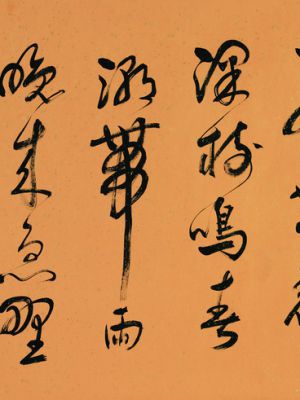 深樹鳴春
潮帶雨
晚来急野